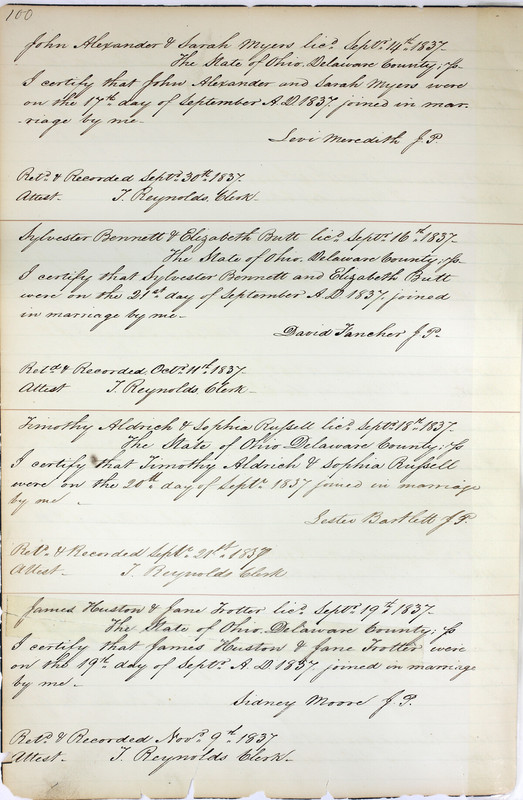 100
John Alexander & Sarah Myers licd. Septr. 14th. 1837.
The State of Ohio, Delaware County; ss
I certify that John Alexander and Sarah Myers were
on the 17th day of September A.D 1837. joined in mar-
-riage by me-
Levi Meredith J.P.
Retd. & Recorded Septr. 30th. 1837.
Attest. T. Reynolds, Clerk-
Sylvester Bennett & Elizabeth Butt licd. Septr. 16th. 1837-
The State of Ohio. Delaware County; ss.
I certify that Sylvester Bennett and Elizabeth Butt
were on the 21st. day of September A.D. 1837. joined
in marriage by me-
David Fancher J.P.
Retd. & Recorded, Octr. 11th. 1837.
Attest T. Reynolds, Clerk-
Timothy Aldrich & Sophia Russell licd. Septr. 18th. 1837.
The State of Ohio Delaware County; ss
I certify that Timothy Aldrich & Sophia Russell
were on the 20th. day of Septr. 1837 joined in marriage
by me -
Lester Bartlett J.P.
Retd. & Recorded Septr. 21st. 1837
Attest- T. Reynolds Clerk
James Huston & Jane Trotter licd. Septr. 19th. 1837.
The State of Ohio, Delaware County; ss
I certify that James Huston & Jane Trotter were
on the 19th. day of Septr. A.D. 1837 joined in marriage
by me-
Sidney Moore J.P.
Retd. & Recorded Novr. 9th. 1837
Attest- T. Reynolds Clerk-